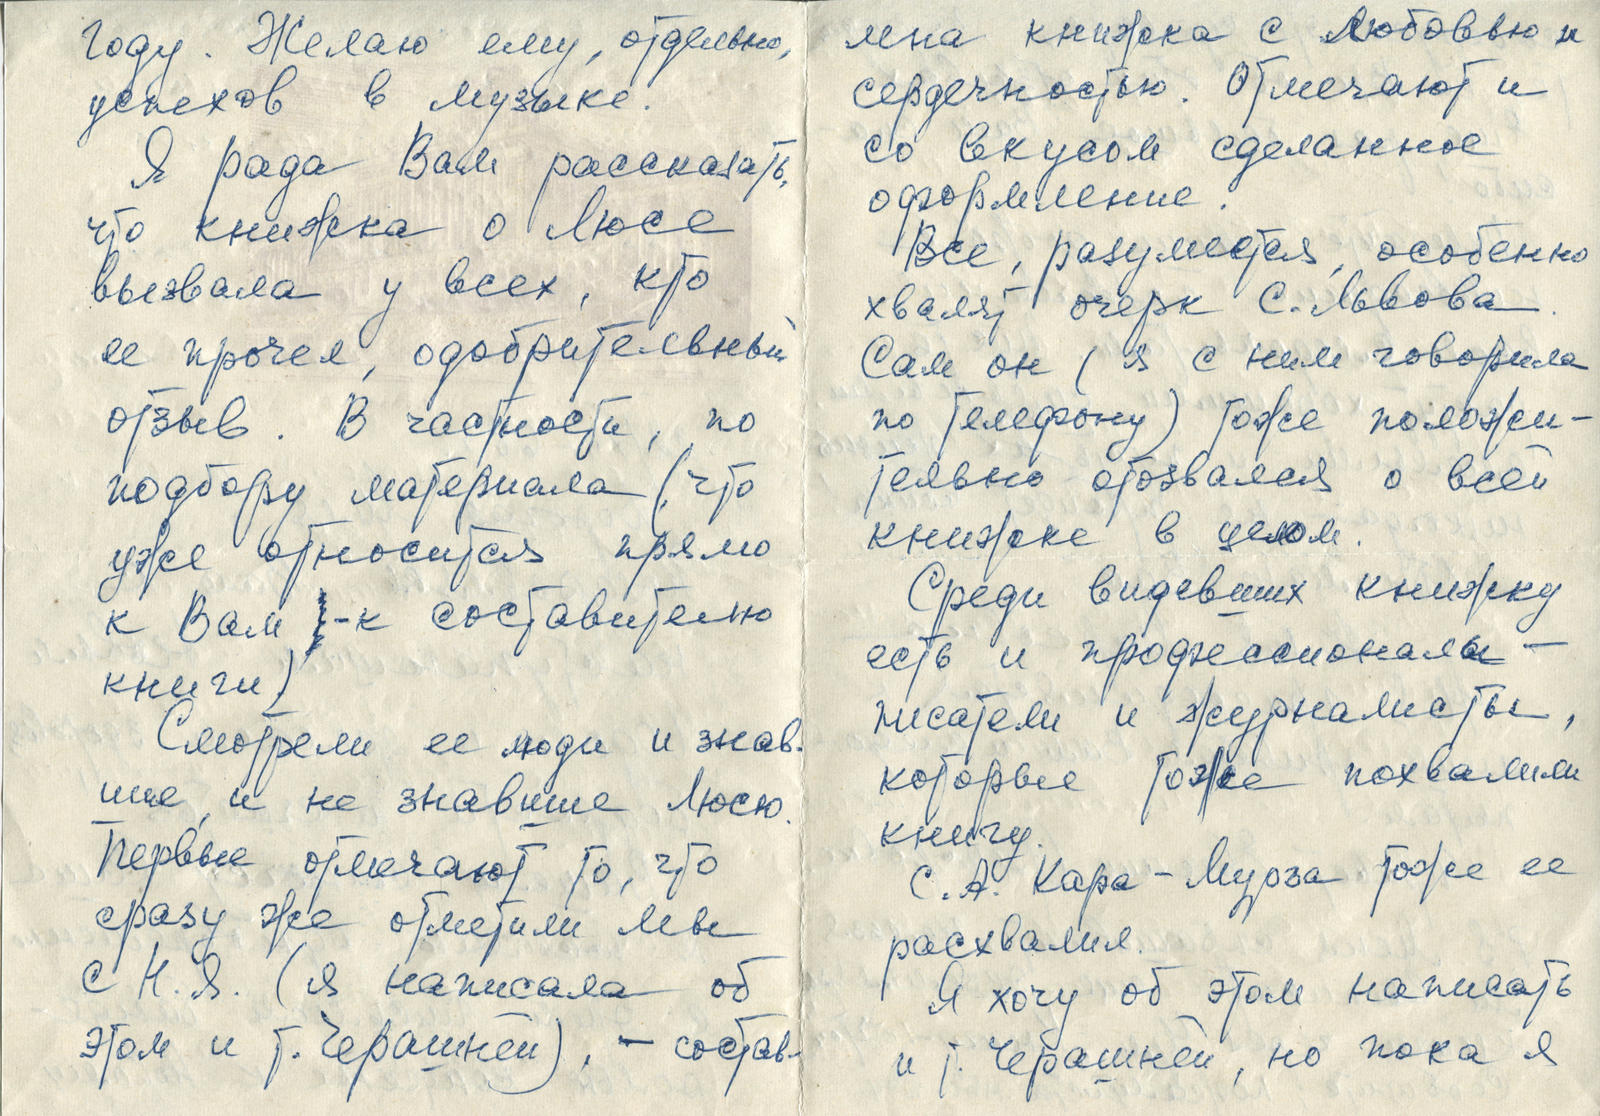 году. Желаю ему, отдельно,
успехов в музыке.
Я рада Вам рассказать,
что книжка о Люсе
вызвала у всех, кто
ее прочел, одобрительный
отзыв. В частности, по
подбору материала (что
уже относится прямо
к Вам - к составителю
книги)
Смотрели ее люди и знав-
шие, и не знавшие Люсю.
Первые отмечают то, что
сразу же отметили мы
с Н.Я. (я написала об
этом и т. Черашней), - состав-
лена книжка с любовью и
сердечностью. Отмечают и
со вкусом сделанное
оформление.
Все, разумеется, особенно
хвалят очерк С. Львова.
Сам он (я с ним говорила
по телефону) тоже положи-
тельно отозвался о всей
книжке в целом.
Среди видевших книжку
есть и профессионалы -
писатели и журналисты,
которые тоже похвалили
книгу.
С. А. Кара-Мурза тоже ее
расхвалил.
Я хочу об этом написать
и т. Черашней, но пока я